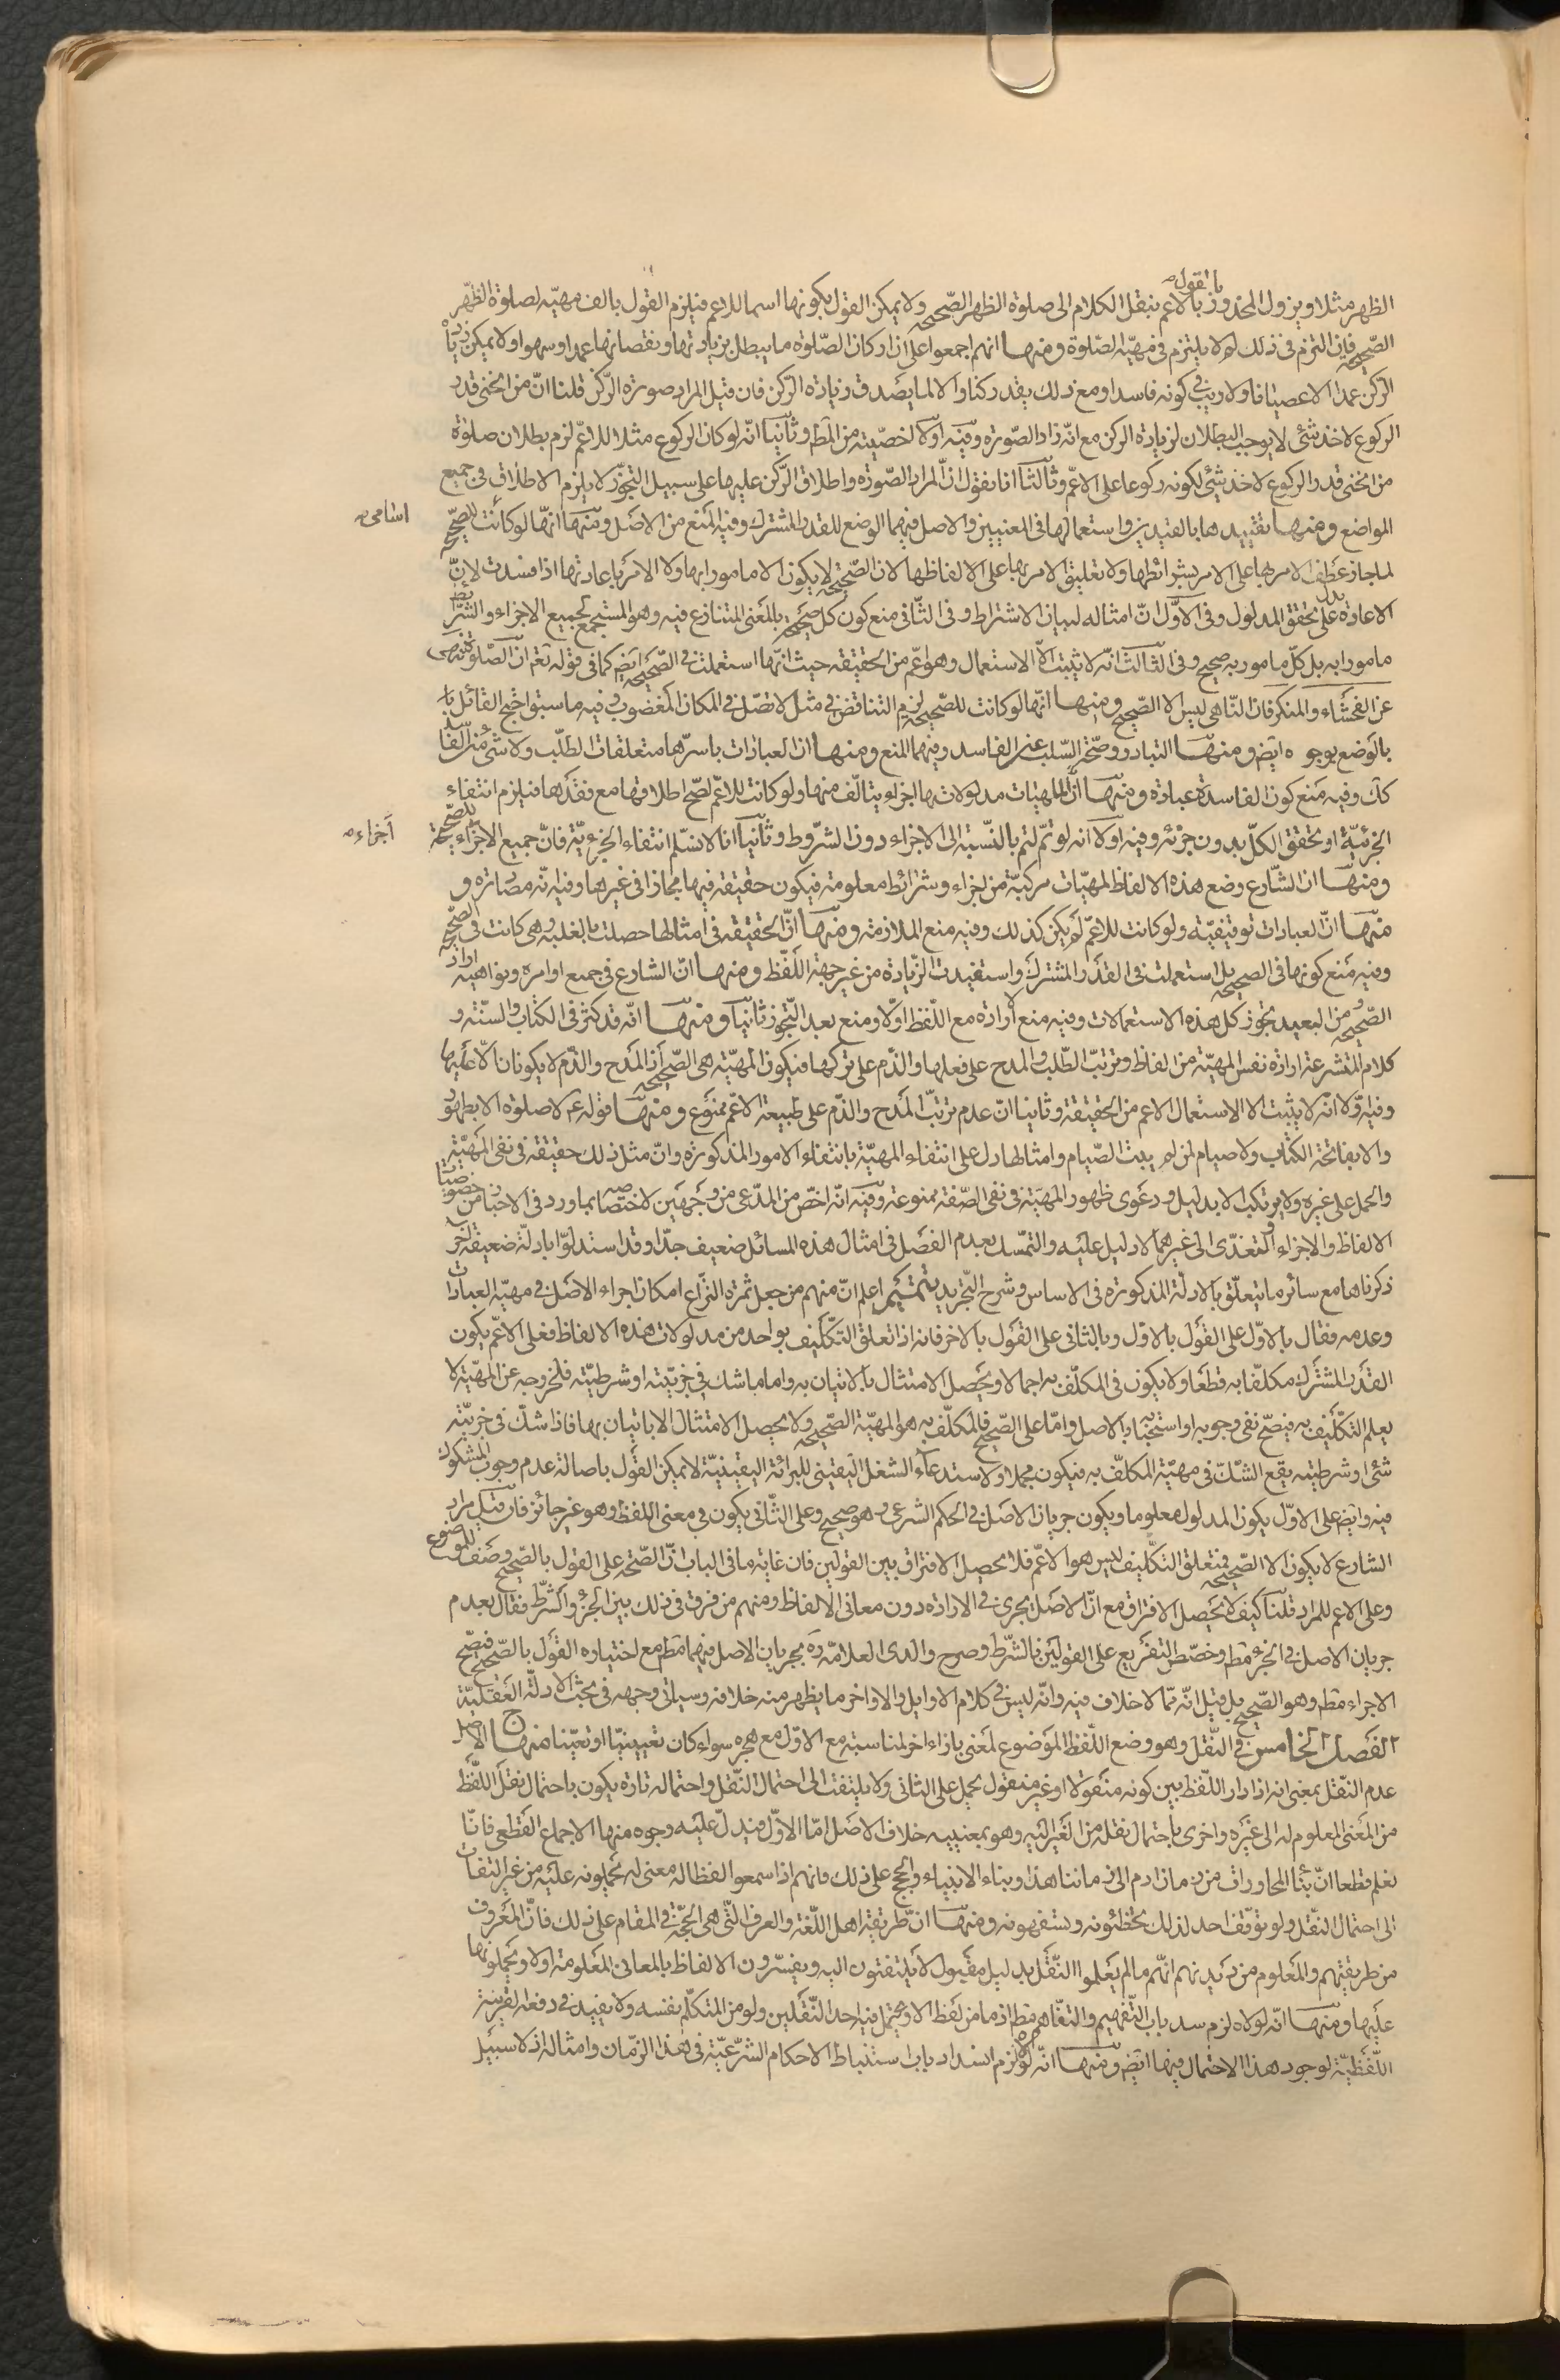 الظهر مثلا ويزول المحذور بالقول بالاعم ننقل الكلام الى صلوة الظهر الصّحيحة ولا يمكن القول بكونها اسما للاعم فيلزم القول بالف مهيّة لصلوة الظهر
الصّحيحة فان التزم فى ذلك لم لا يلتزم فى مهيّة الصّلوة ومنها انهم اجمعوا على ان اركان الصّلوة ما يبطل بزيادتها ونقصانها عمدا وسهوا ولا يمكن زيادة
الركن عمدا الا عصيانا ولا ريب فى كونه فاسدا ومع ذلك يعد ركنا والا لما يصدق زيادة الركن فان قيل المراد صورة الركن قلنا انّ من انحنى قدر
الركوع لاخذ شئ لا يوجب البطلان لزيادة الركن مع انّه زاد الصّورة وفيه اولا اخصّيته من المط وثانيا انّه لو كان الركوع مثلا للاعمّ لزم بطلان صلوة
من انحنى قدر الركوع لاخذ شئ لكونه ركوعا على الاعمّ وثالثا انا نقول انّ المراد الصّورة واطلاق الرّكن عليها على سبيل التجوّز لا يلزم الاطلاق فى جميع
المواضع ومنها تقييدها بالقيدين واستعمالها فى المعنيين والاصل فيهما الوضع للقدر المشترك وفيه المنع من الاصل ومنها انّها لو كانت اسامى للصّحيحة
لما جاز عطف الامر بها على الامر بشرائطها ولا تعليق الامر بها على الفاظها لان الصّحيحة لا يكون الا مامورا بها ولا الامر باعادتها اذا فسدت لانّ
الاعادة يدل على تحقق المدلول وفى الاوّل انّ امثاله لبيان الاشتراط وفى الثّانى منع كون كل صحيحة بالمعنى المتنازع فيه وهو المستجمع لجميع الاجزاء والشّرائط
مامورا به بل كلّ مامور به صحيح وفى الثالث انّه لا يثبت الّا الاستعمال وهو اعمّ من الحقيقة حيث انّها استعملت فى الصّحيحة ايضم كما فى قوله تعم انّ الصّلوة تنهى
عن الفحشاء والمنكر فان النّاهى ليس الا الصّحيح ومنها انّها لو كانت للصّحيحة لزم التناقض فى مثل لا تصل فى المكان المغضوب وفيه ما سبق احتج القائل بانّها
بالوضع بوجوه ايضم ومنها التبادر وصحّة السّلب عن الفاسد وفيهما المنع ومنها ان العبادات باسرها متعلقات الطلب ولا شئ من الفاسد
كك وفيه منع كون الفاسدة عبادة ومنها انّ للمهيّات مدلولاتها اجزاء يتالّف منها ولو كانت للاعمّ لصحّ اطلاقها مع فقدها فيلزم انتفاء
الجزئيّة او تحقق الكلّ بدون جزئه وفيه اولا انه لو تمّ لتم بالنّسبة الى الاجزاء دون الشّروط وثانيا انا لا نسلّم انتفاء الجزئيّة فانّ جميع الاجزاء اجزاء للصّحيحة
ومنها ان الشّارع وضع هذه الالفاظ لمهيّات مركبّة من اجزاء وشرائط معلومة فيكون حقيقة فيها مجازا فى غيرها وفيه انّه مصادرة و
منها انّ العبادات توقيفيّة ولو كانت للاعمّ لم يكن كذلك وفيه منع الملازمة ومنها انّ الحقيقة فى امثالها حصلت بالغلبة وهى كانت فى الصّحيحة
وفيه منع كونها فى الصحيحة بل استعملت فى القدر المشترك واستفيدت الزّيادة من غير جهة اللّفظ ومنها انّ الشارع فى جميع اوامره ونواهيه اراد
الصّحيحة ومن البعيد تجوز كل هذه الاستعمالات وفيه منع ارادة مع اللّفظ اوّلا ومنع بعد التّجوز ثانيا ومنها انّه قد كثر فى الكتاب والسنّة و
كلام المتشرعة ارادة نفس المهيّة من الفاظ وترتّب الطّلب والمدح على فعلها والذّم على تركها فيكون المهيّة هى الصّحيحة اذ المدح والذّم لا يكونان الّا عليها
وفيه اوّلا انّه لا يثبت الا الاستعمال الاعم من الحقيقة وثانيا انّ عدم ترتّب المدح والذّم على طبيعة الاعّم ممنوع ومنها قوله عم لا صلوة الا بطهور
والا بفاتحة الكتاب ولا صيام لمن لم يبت الصّيام وامثالها دل على انتفاء المهيّة بانتفاء الامور المذكورة وانّ مثل ذلك حقيقة فى نفى المهيّة
والحمل على غيره ولا يرتكب الا بدليل ودعوى ظهور المهيّة فى نفى الصّفة ممنوعة وفيه انّه اخصّ من المدّعى من وجهين لاختصاصه بما ورد فى الاخبار من خصوصيّات
الالفاظ والاجزاء والتعدّى الى غيرهما لا دليل عليه والتمسّك بعدم الفصل فى امثال هذه المسائل ضعيف جدّا وقد استدلّوا بادلّة ضعيفة اخر
ذكرناها مع سائر ما يتعلّق بالادلّة المذكورة فى الاساس وشرح التّجريد تتميم اعلم انّ منهم من جعل ثمرة النّزاع امكان اجراء الاصل فى مهيّة العبادات
وعدمه فقال بالاوّل على القول بالاوّل وبالثانى على القول بالاخر فانه اذا تعلق التّكليف بواحد من مدلولات هذه الالفاظ فعلى الاعّم يكون
القدر المشترك مكلّفا به قطعا ولا يكون فى المكلّف به اجمال ويحصل الامتثال بالاتيان به واما ما شك فى جزئيّته او شرطيّته فلخروجه عن المهيّة لا
يعلم التكليف به فيصحّ نفى وجوبه او استحبابه بالاصل وامّا على الصّحيح فالمكلّف به هو المهيّة الصّحيحة ولا يحصل الامتثال الا باتيان بها فاذا شكّ فى جزئيّة
شئ او شرطيّته يقع الشّكّ فى مهيّة المكلّف به فيكون مجملا ولاستدعاء الشغل اليقينى للبرائة اليقينيّة لا يمكن القول باصالة عدم وجوب المشكوك
فيه وايضم على الاوّل يكون المدلول معلوما ويكون جريان الاصل فى الحكم الشرعى وهو صحيح وعلى الثّانى يكون فى معنى اللفظ وهو غير جائز فان قيل مراد
الشارع لا يكون الا الصّحيحة فمتعلق التكليف ليس هو الاعّم فلا يحصل الافتراق بين القولين فان غاية ما فى الباب انّ الصّحة على القول بالصّحيح وصف للموضوع
وعلى الاعم للمراد قلنا كيف لا يحصل الافتراق مع انّ الاصل يجرى فى الارادة دون معانى الالفاظ ومنهم من فرق فى ذلك بين الجزؤ والشّرط فقال بعدم
جريان الاصل فى الجزء مطم وخصّص التفريع على القولين بالشّرط وصرح والدى العلامّة ره بجريان الاصل فيهما مطم مع اختياره القول بالصّحيح فصحّ
الاجراء مطم وهو الصّحيح بل قيل انّه ممّا لا خلاف فيه وانّه ليس فى كلام الاوايل والاواخر ما يظهر منه خلافه وسياتى وجهه فى بحث الادلّة العقليّة
الفصل الخامس فى النّقل وهو وضع اللّفظ الموضوع لمعنى بازاء اخر لمناسبته مع الاوّل مع هجره سواء كان تعيينيّا او تعيّنا منهاج الاصل
عدم النّقل بمعنى انه اذا دار اللّفظ بين كونه منقولا او غير منقول يحمل على الثانى ولا يلتفت الى احتمال النّقل واحتماله تارة يكون باحتمال نقل اللّفظ
من المعنى المعلوم له الى غيره واخرى باحتمال نقله من الغير اليه وهو بمعنييه خلاف الاصل امّا الاوّل فيدلّ عليه وجوه منها الاجماع القطعى فانّا
نعلم قطعا انّ بناء المحاورات من زمان ادم الى زماننا هذا وبناء الانبياء والحجج على ذلك فانهم اذا سمعوا لفظا له معنى له يحملونه عليه من غير التفات
الى احتمال النّقل ولو توقّف احد لذلك يخطّئونه ويستفهمونه ومنها انّ طريقة اهل اللّغة والعرف الّتى هى الحجّة فى المقام على ذلك فانّ المعروف
من طريقتهم والمعلوم من ديدنهم انّهم ما لم يعلموا النّقل بدليل مقبول لا يلتفتون اليه ويفسّرون الالفاظ بالمعانى المعلومة اولا ويحملونها
عليها ومنها انّه لولاه لزم سد باب التّفهيم والتفّاهم مطم اذ ما من لفظ الا ويحتمل فيه احد النّقلين ولو من المتكلّم بنفسه ولا يفيد فى دفعه القرينة
اللّفظيّة لوجود هذا الاحتمال فيها ايضم ومنها انّه لولاه لزم انسداد باب استنباط الاحكام الشّرعيّة فى هذا الزّمان وامثاله اذ لا سبيل